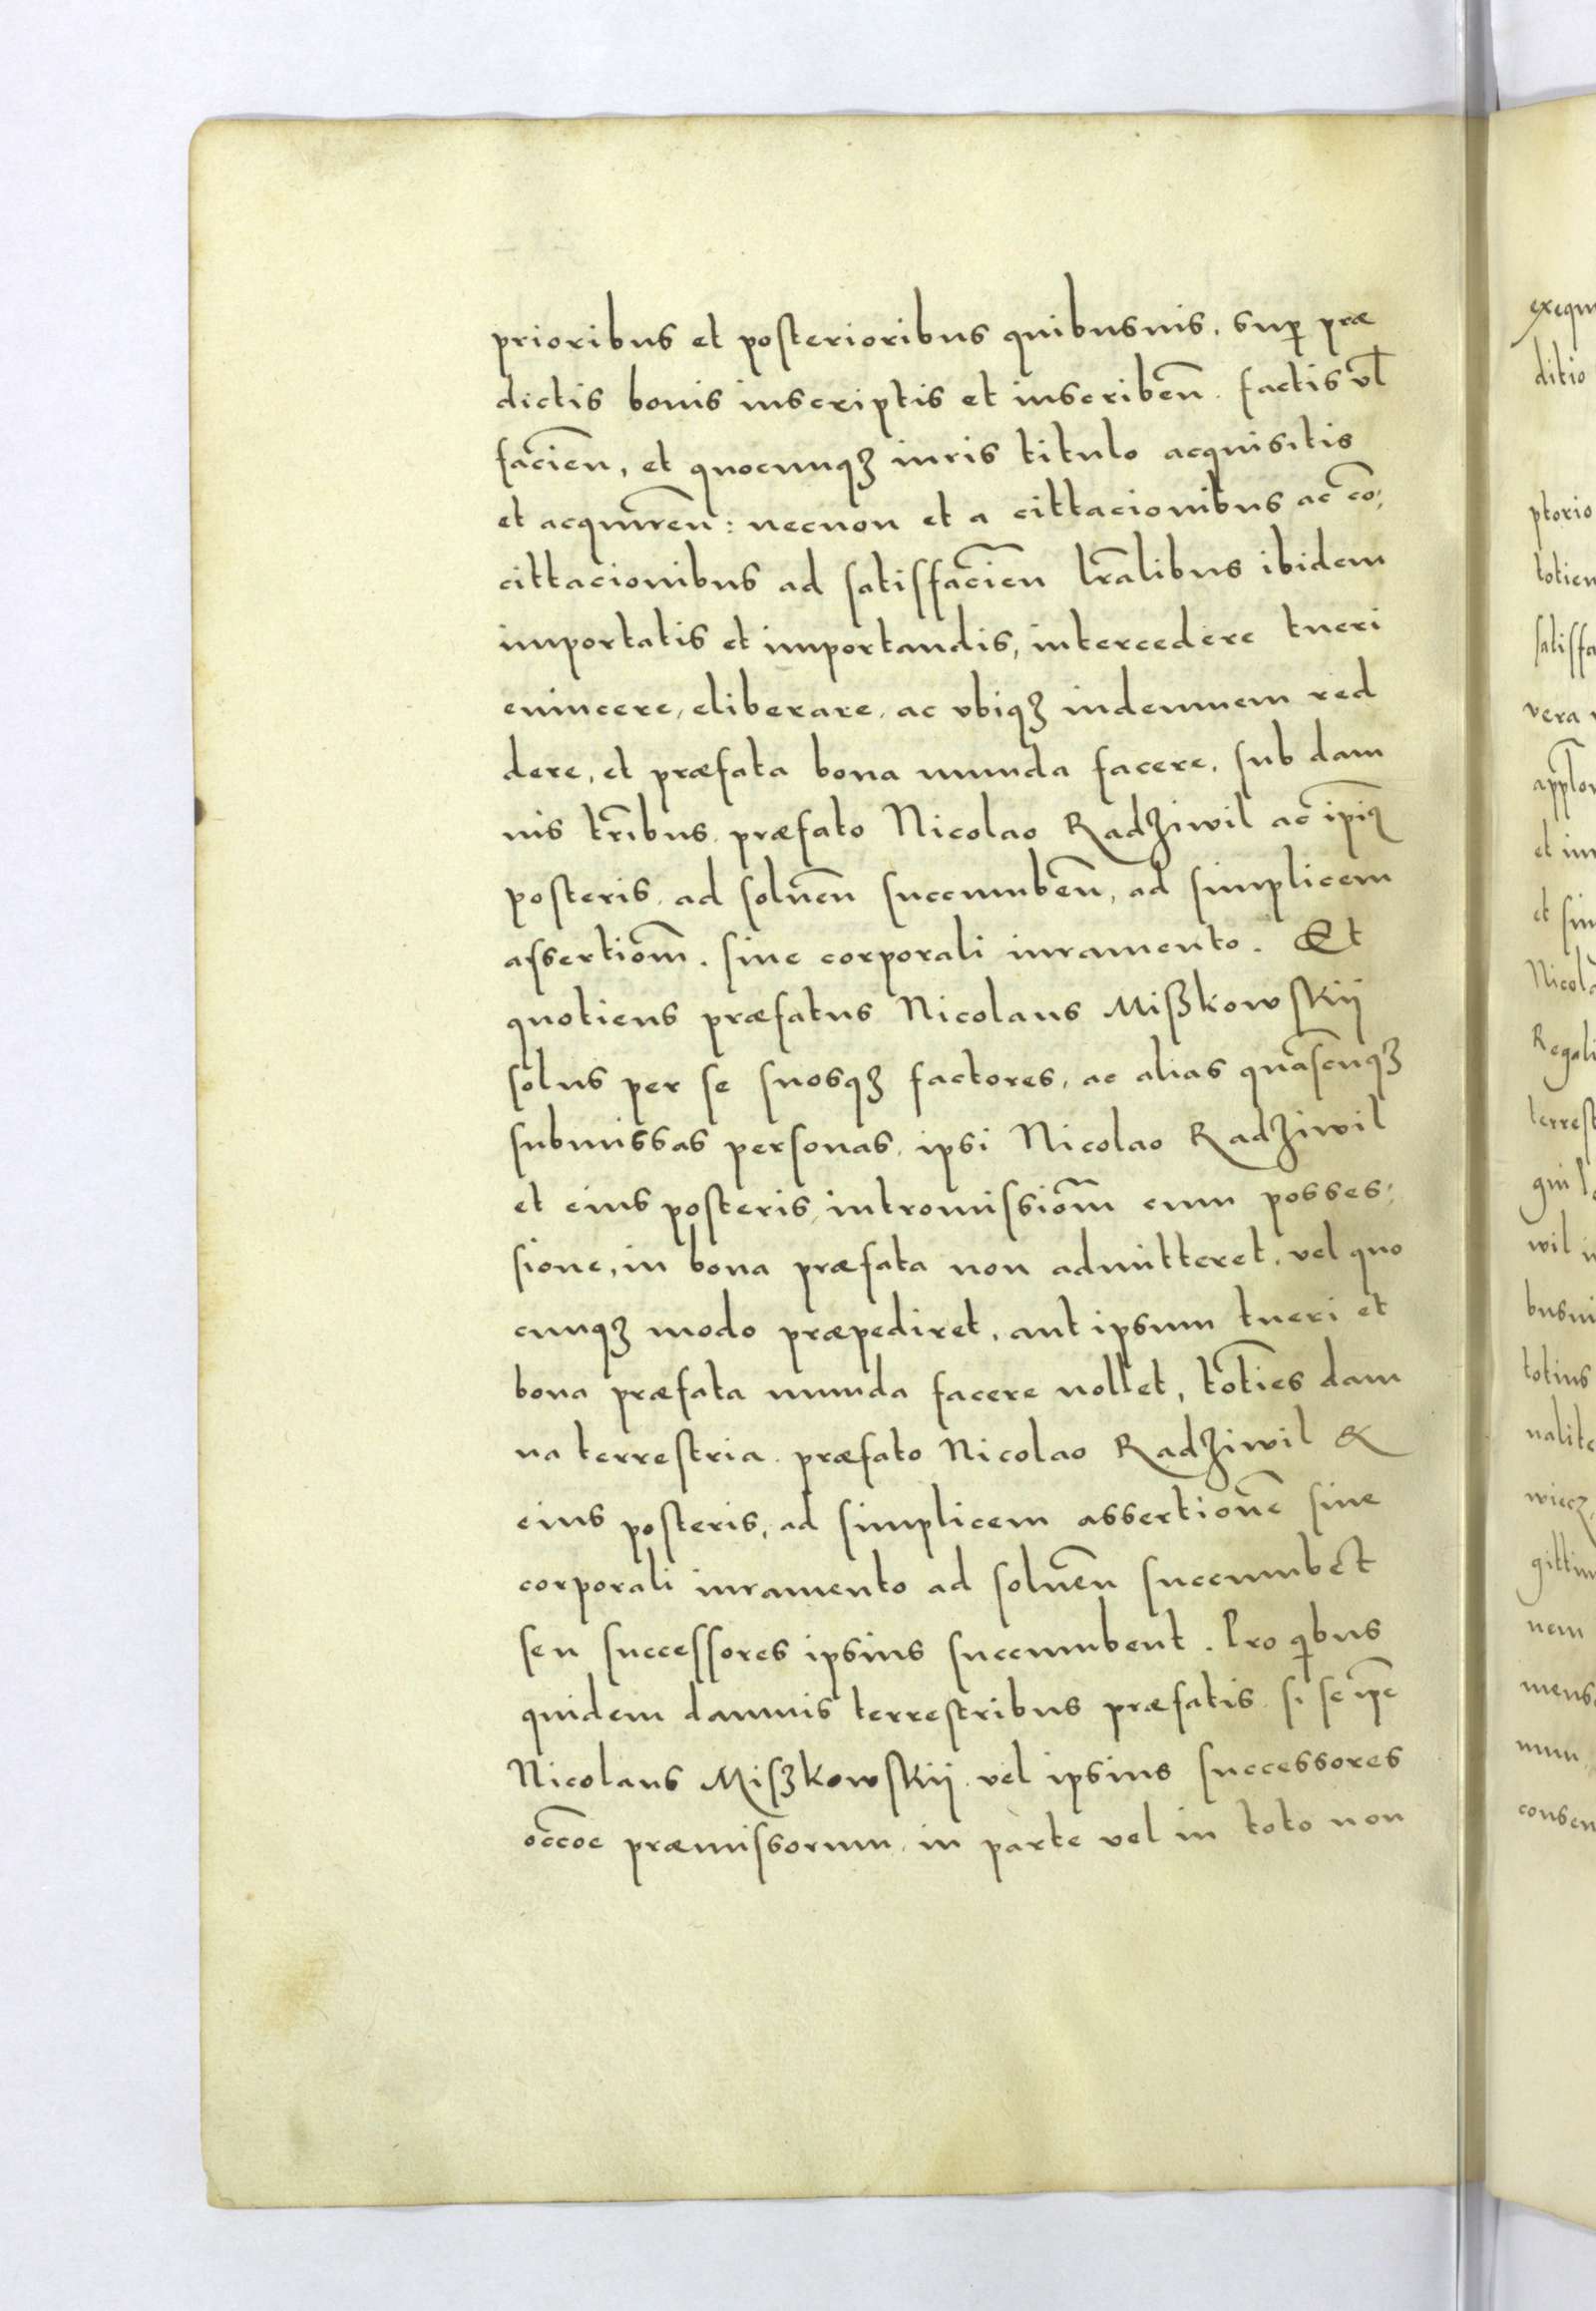 prioribus et posterioribus quibusuis, sup̲ præ
dictis bonis inscriptis et inscribēn. factis vl̄
faciēn, et quocunqꝫ iuris titulo acquisitis
et acquirēn: necnon et a cittacionibus ac cō:
cittacionibus ad satisfaciēn lr̄alibus ibidem
importatis et importandis, intercedere tueri
euincere, eliberare, ac vbiqꝫ indemnem red
dere, et præfata bona munda facere, sub dam
nis tr̄ibus, præfato Nicolao Radziwil ac ip̄iꝰ
posteris, ad soluēn succumbēn, ad simplicem
assertiōm. sine corporali iuramento. Et
quotiens præfatus Nicolaus Mißkowskij
solus per se suosqꝫ factores, ac alias quāscuqꝫ
submissas personas, ipsi Nicolao Radziwil
et eius posteris, intromissiōm cum posses:
sione, in bona præfata non admitteret, vel quo
cunqꝫ modo præpediret, aut ipsum tueri et
bona præfata munda facere nollet, tōties dam
na terrestria præfato Nicolao Radziwil &
eius posteris, ad simplicem assertionē sine
corporali iuramento ad soluēn succumbet
seu successores ipsius succumbent. Pro qibus
quidem damnis terrestribus præfatis si se ip̄e
Nicolaus Mißkowskij vel ipsius successores
occ̄oe præmissorum, in parte vel in toto non
exequ
ditio
ptorio
totien
satisfa
vera
appl̄o
et im
et sin
Nicola
Regali
terrest
gni
wil
busui
totius
nalite
wiecz
gittim
nem
mens
num
consen